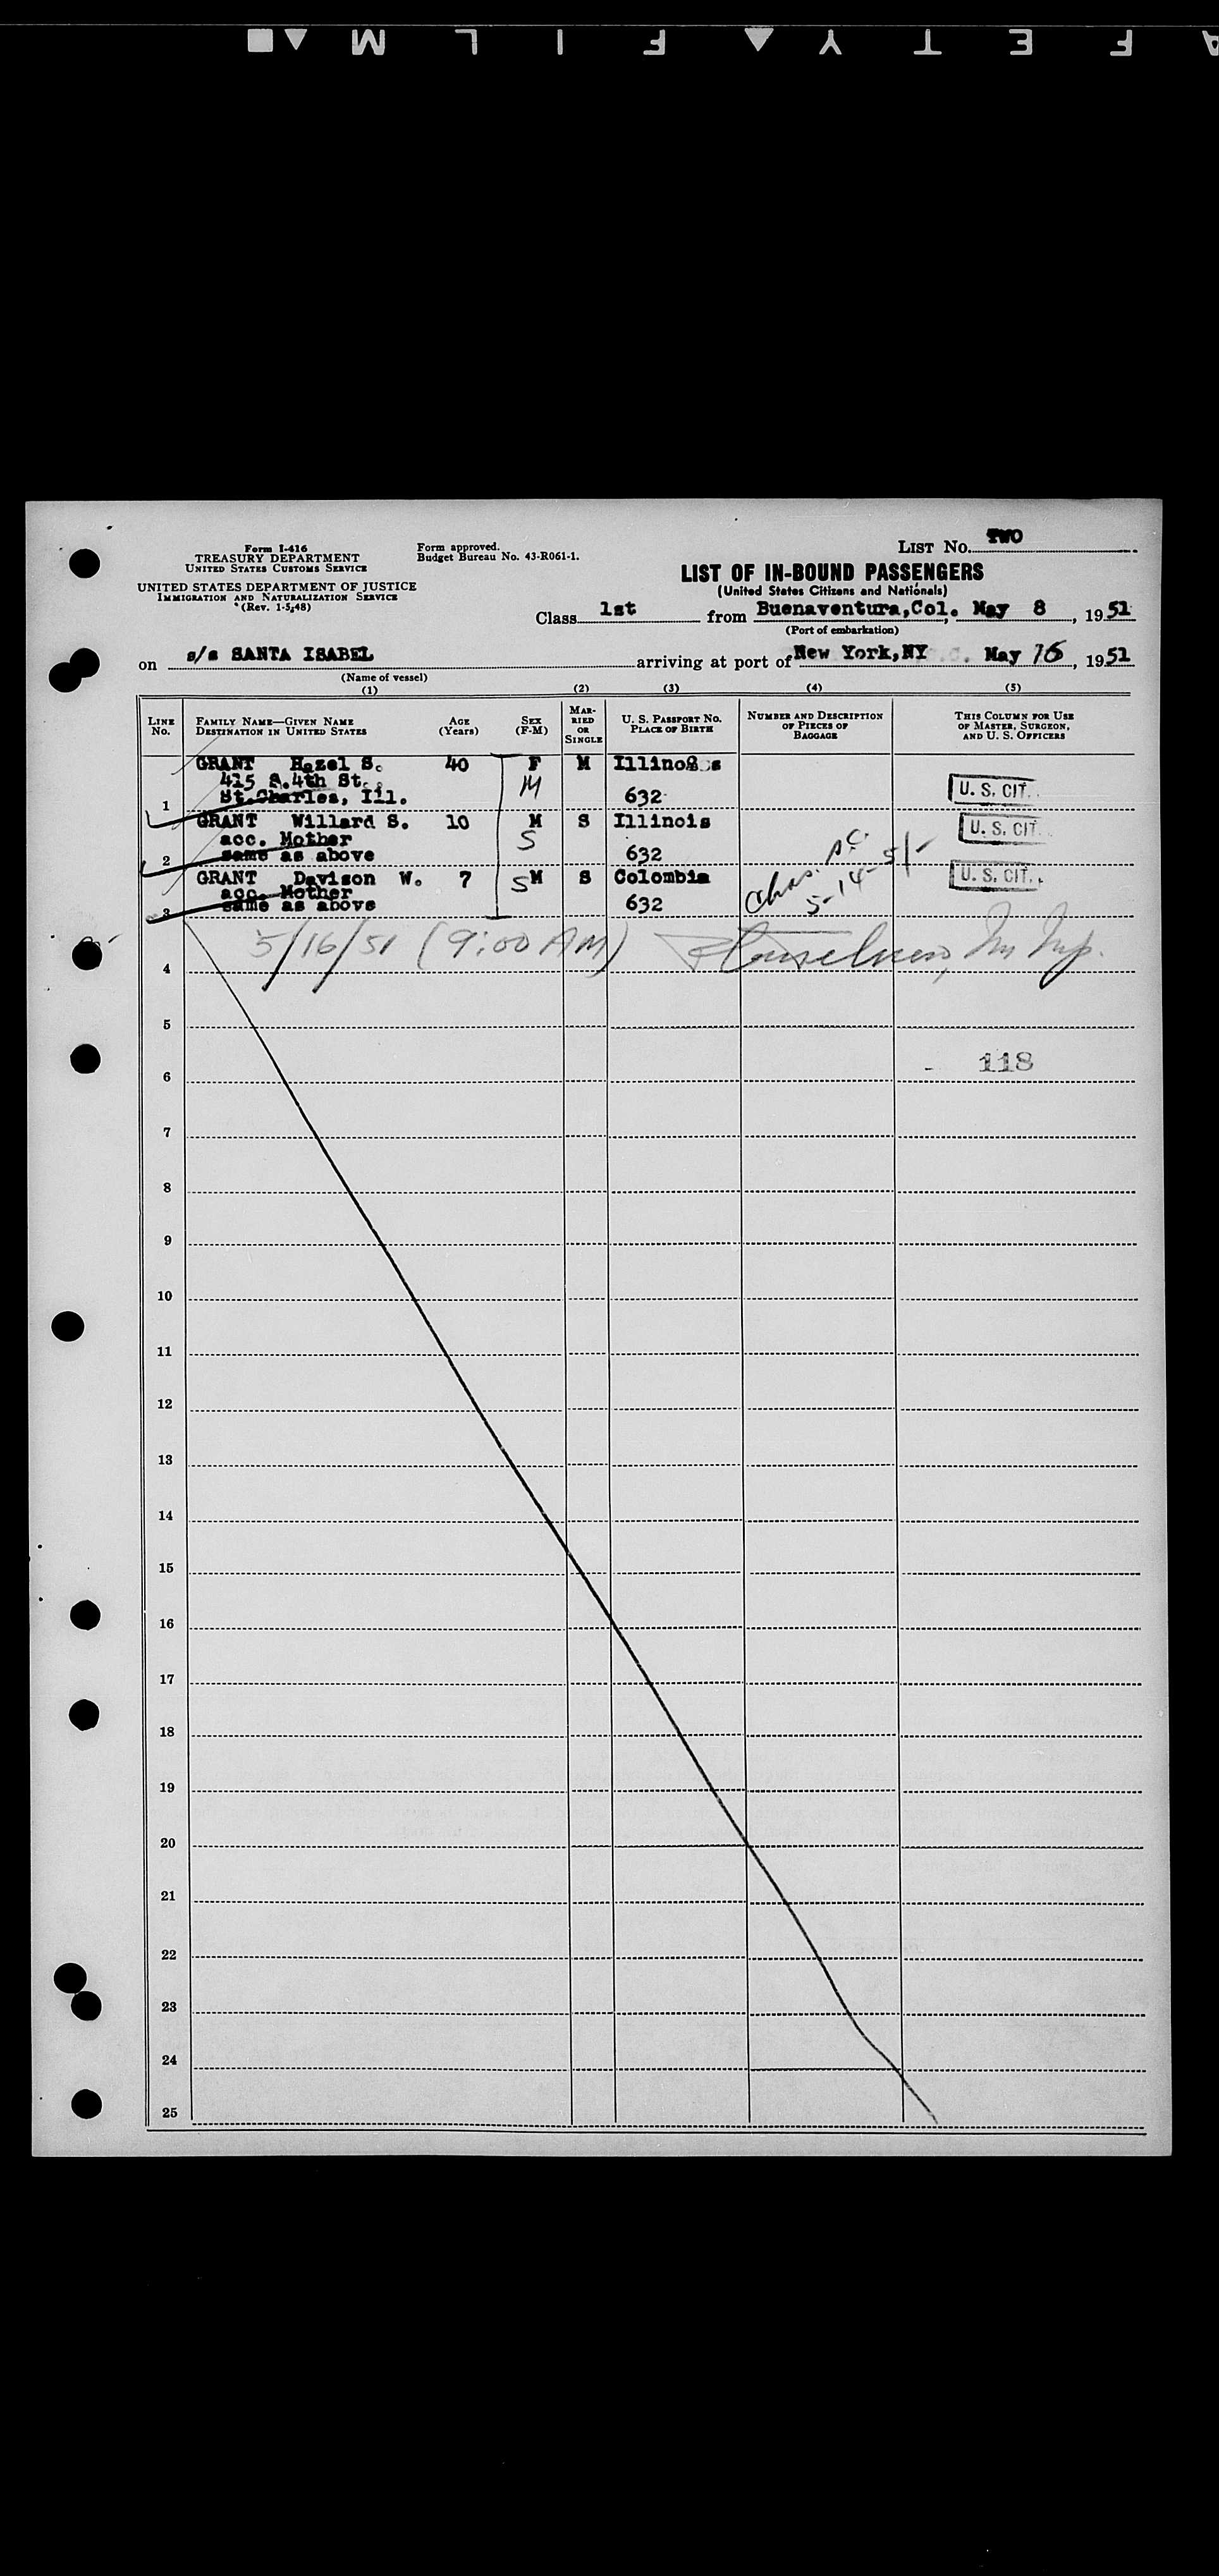 A F E T Y F I L M
Form I-416
TREASURY DEPARTMENT
UNITED STATES CUSTOMS SERVICE
UNITED STATES DEPARTMENT OF JUSTICE
IMMIGRATION AND NATURALIZATION SERVICE
(Rev. 1-5-48)
Form approved.
Budget Bureau No. 43-R061-1.
LIST NO. TWO
LIST OF IN-BOUND PASSENGERS
(United States Citizens and Nationals)
Class 1st from Buenaventura, Col. May 8, 1951
(Port of embarkation)
on s/s SANTA ISABEL arriving at port of New York, NY May 16, 1951
(Name of vessel)
(1) (2) (3) (4) (5)
LINE NO. FAMILY NAME—GIVEN NAME DESTINATION IN UNITED STATES AGE (Years) SEX (F-M) MARRIED OR SINGLE U. S. PASSPORT NO. PLACE OF BIRTH NUMBER AND DESCRIPTION OF PIECES OF BAGGAGE THIS COLUMN FOR USE OF MASTER, SURGEON, AND U. S. OFFICERS
GRANT Hazel S. 40 F M Illinois
415 S. 4th St. M U. S. CIT.
1 St. Charles, Ill. 632
GRANT Willard S. 10 M S Illinois U. S. CIT.
acc. Mother S
2 same as above 632
GRANT Davison W. 7 S M S Colombia U. S. CIT.
acc. Mother
3 same as above 632
Chas.
5-14-51
5/16/51 (9:00 AM)
4
5
118
6
7
8
9
10
11
12
13
14
15
16
17
18
19
20
21
22
23
24
25